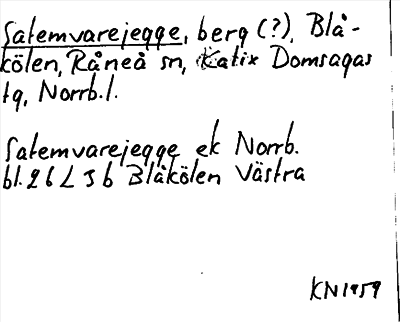 Satemvarejegge, berg (?), Blå-
kölen, Råneå sn, Kalix Domsagas
tg, Norrb. l.
Satemvarejegge ek Norrb.
bl. 26 L 5 b Blåkölen Västra
KN 1959